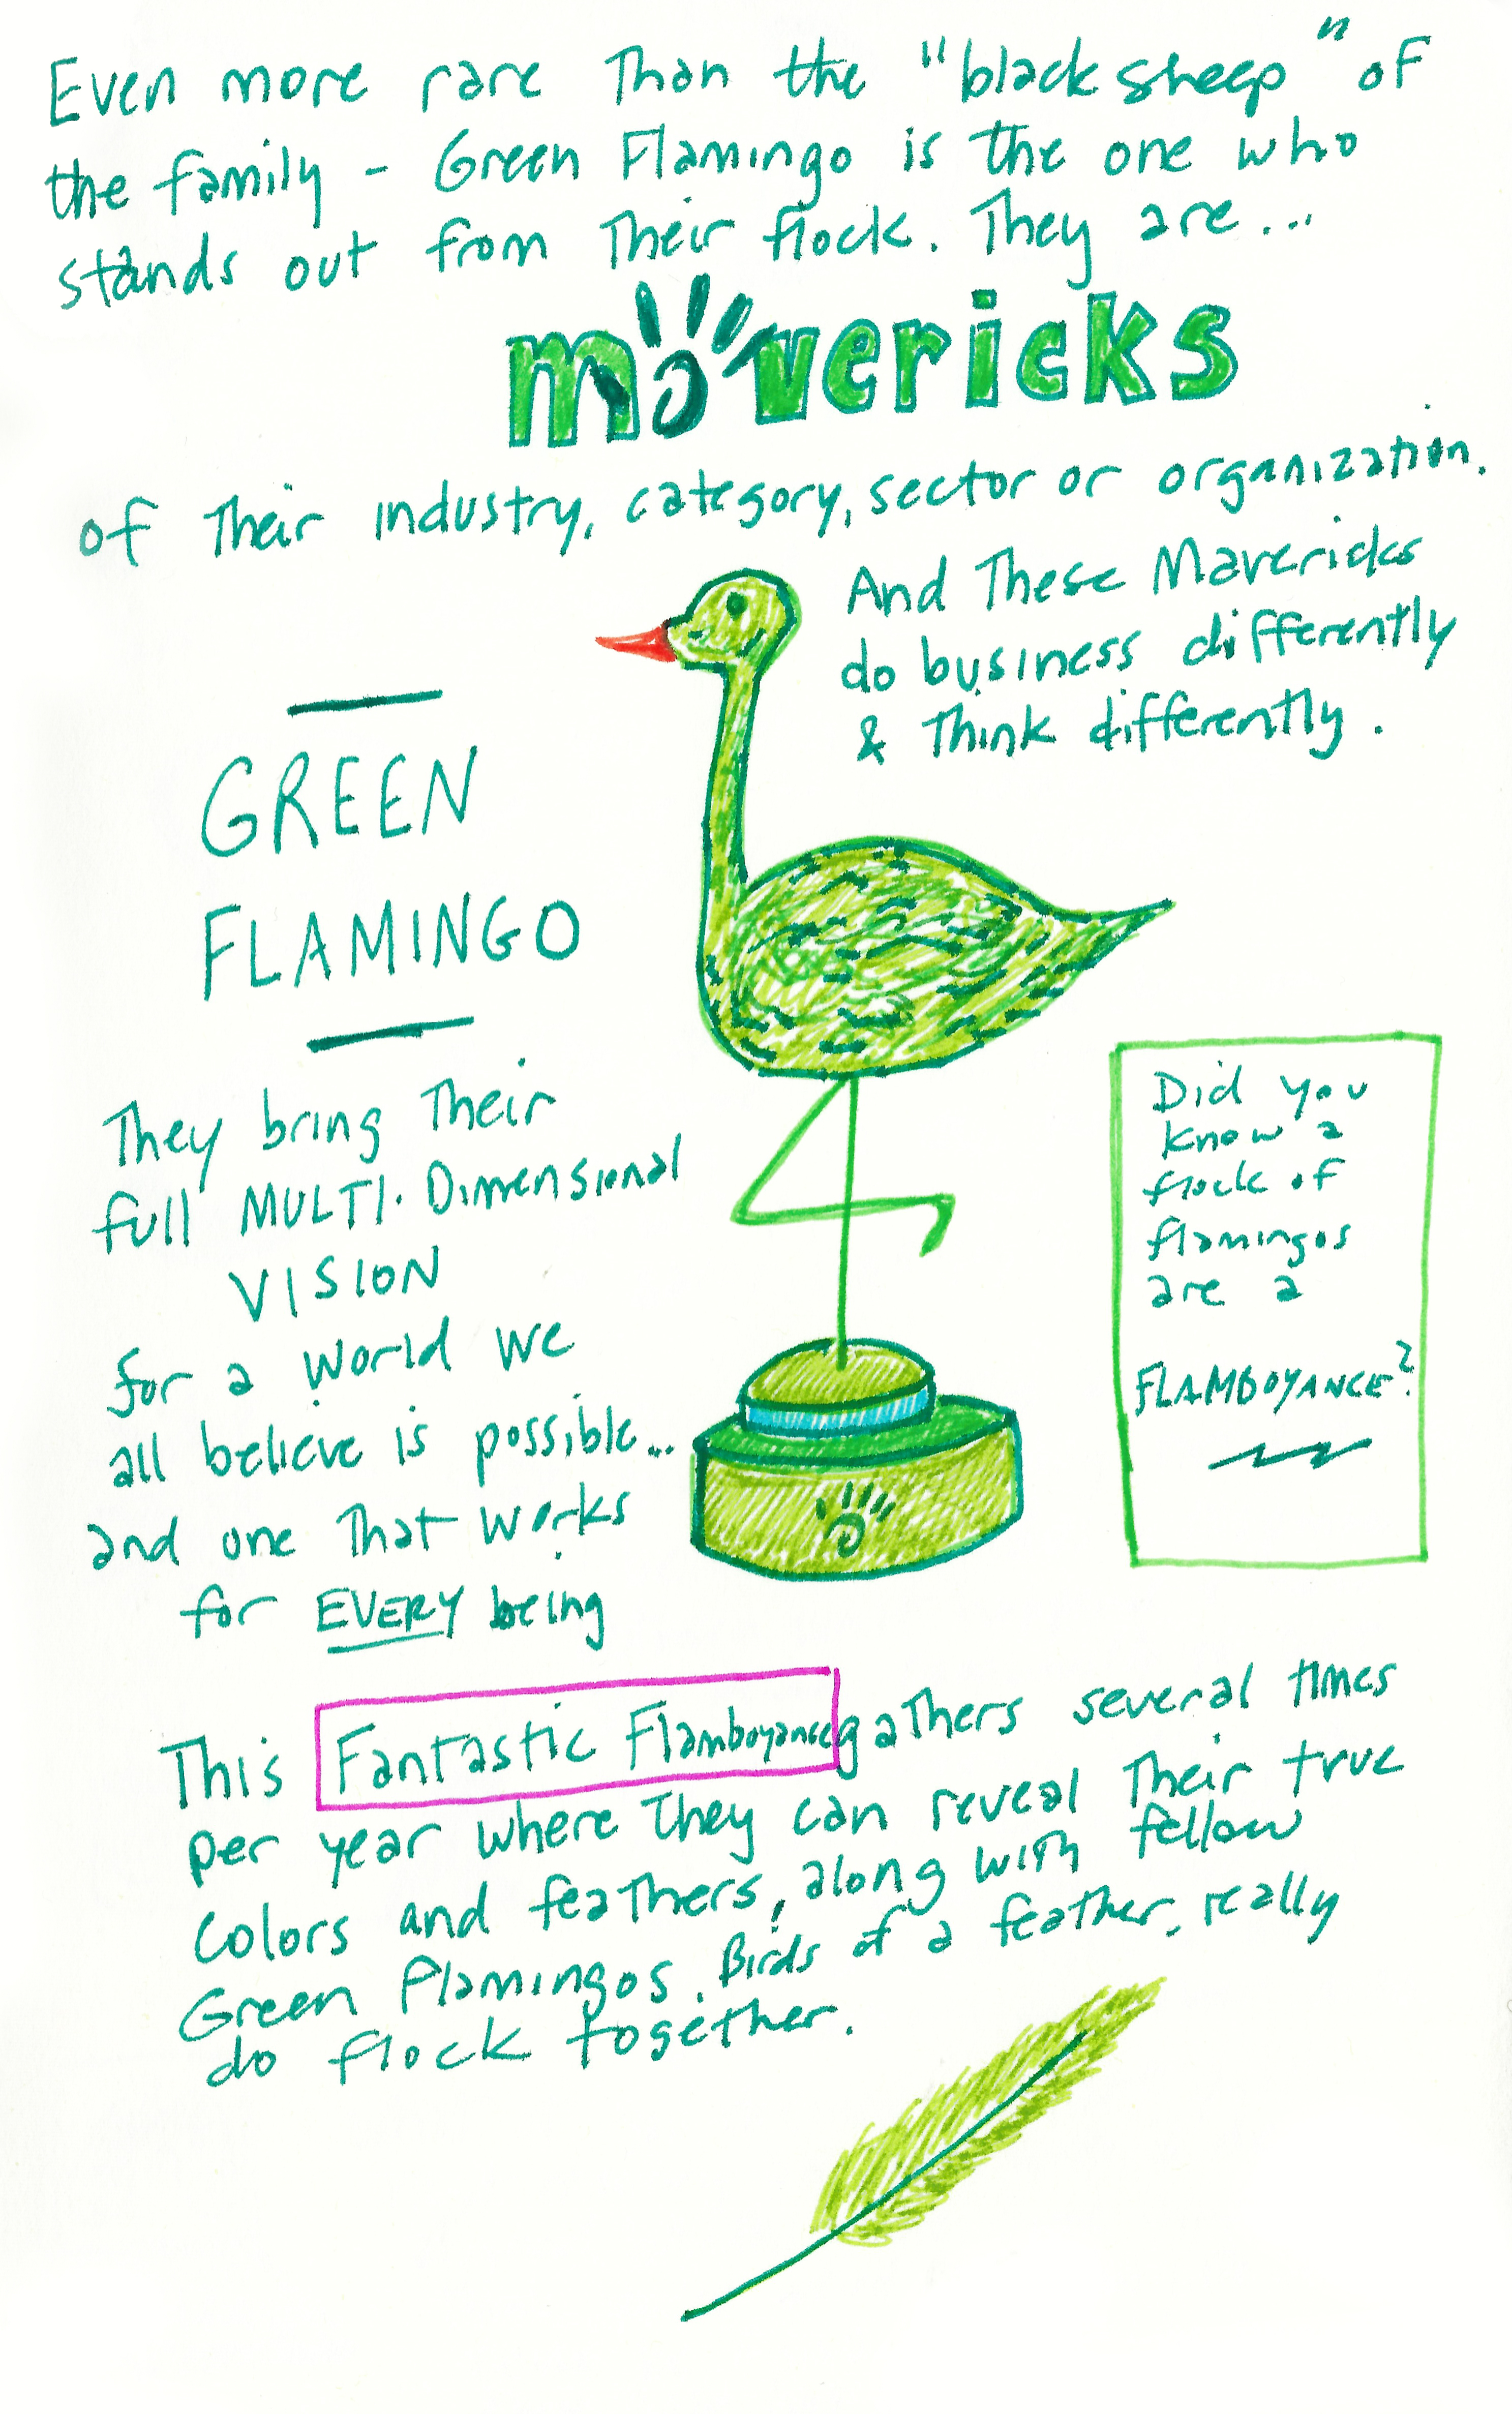 Even more rare Than the "black sheep" of
the family - Green Flamingo is the one who
stands out from Their flock. They are...
mavericks
of Their industry, category, sector or organization.
And These Mavericks
do business differently
& Think differently.
GREEN
FLAMINGO
They bring Their
full MULTI-Dimensional
VISION
for a world we
all believe is possible...
and one That works
for EVERY being
Did you
know a
flock of
flamingos
are a
FLAMBOYANCE?
This Fantastic Flamboyance gathers several times
per year where They can reveal Their true
colors and feathers, along with fellow
Green Flamingos. Birds of a feather, really
do flock together.